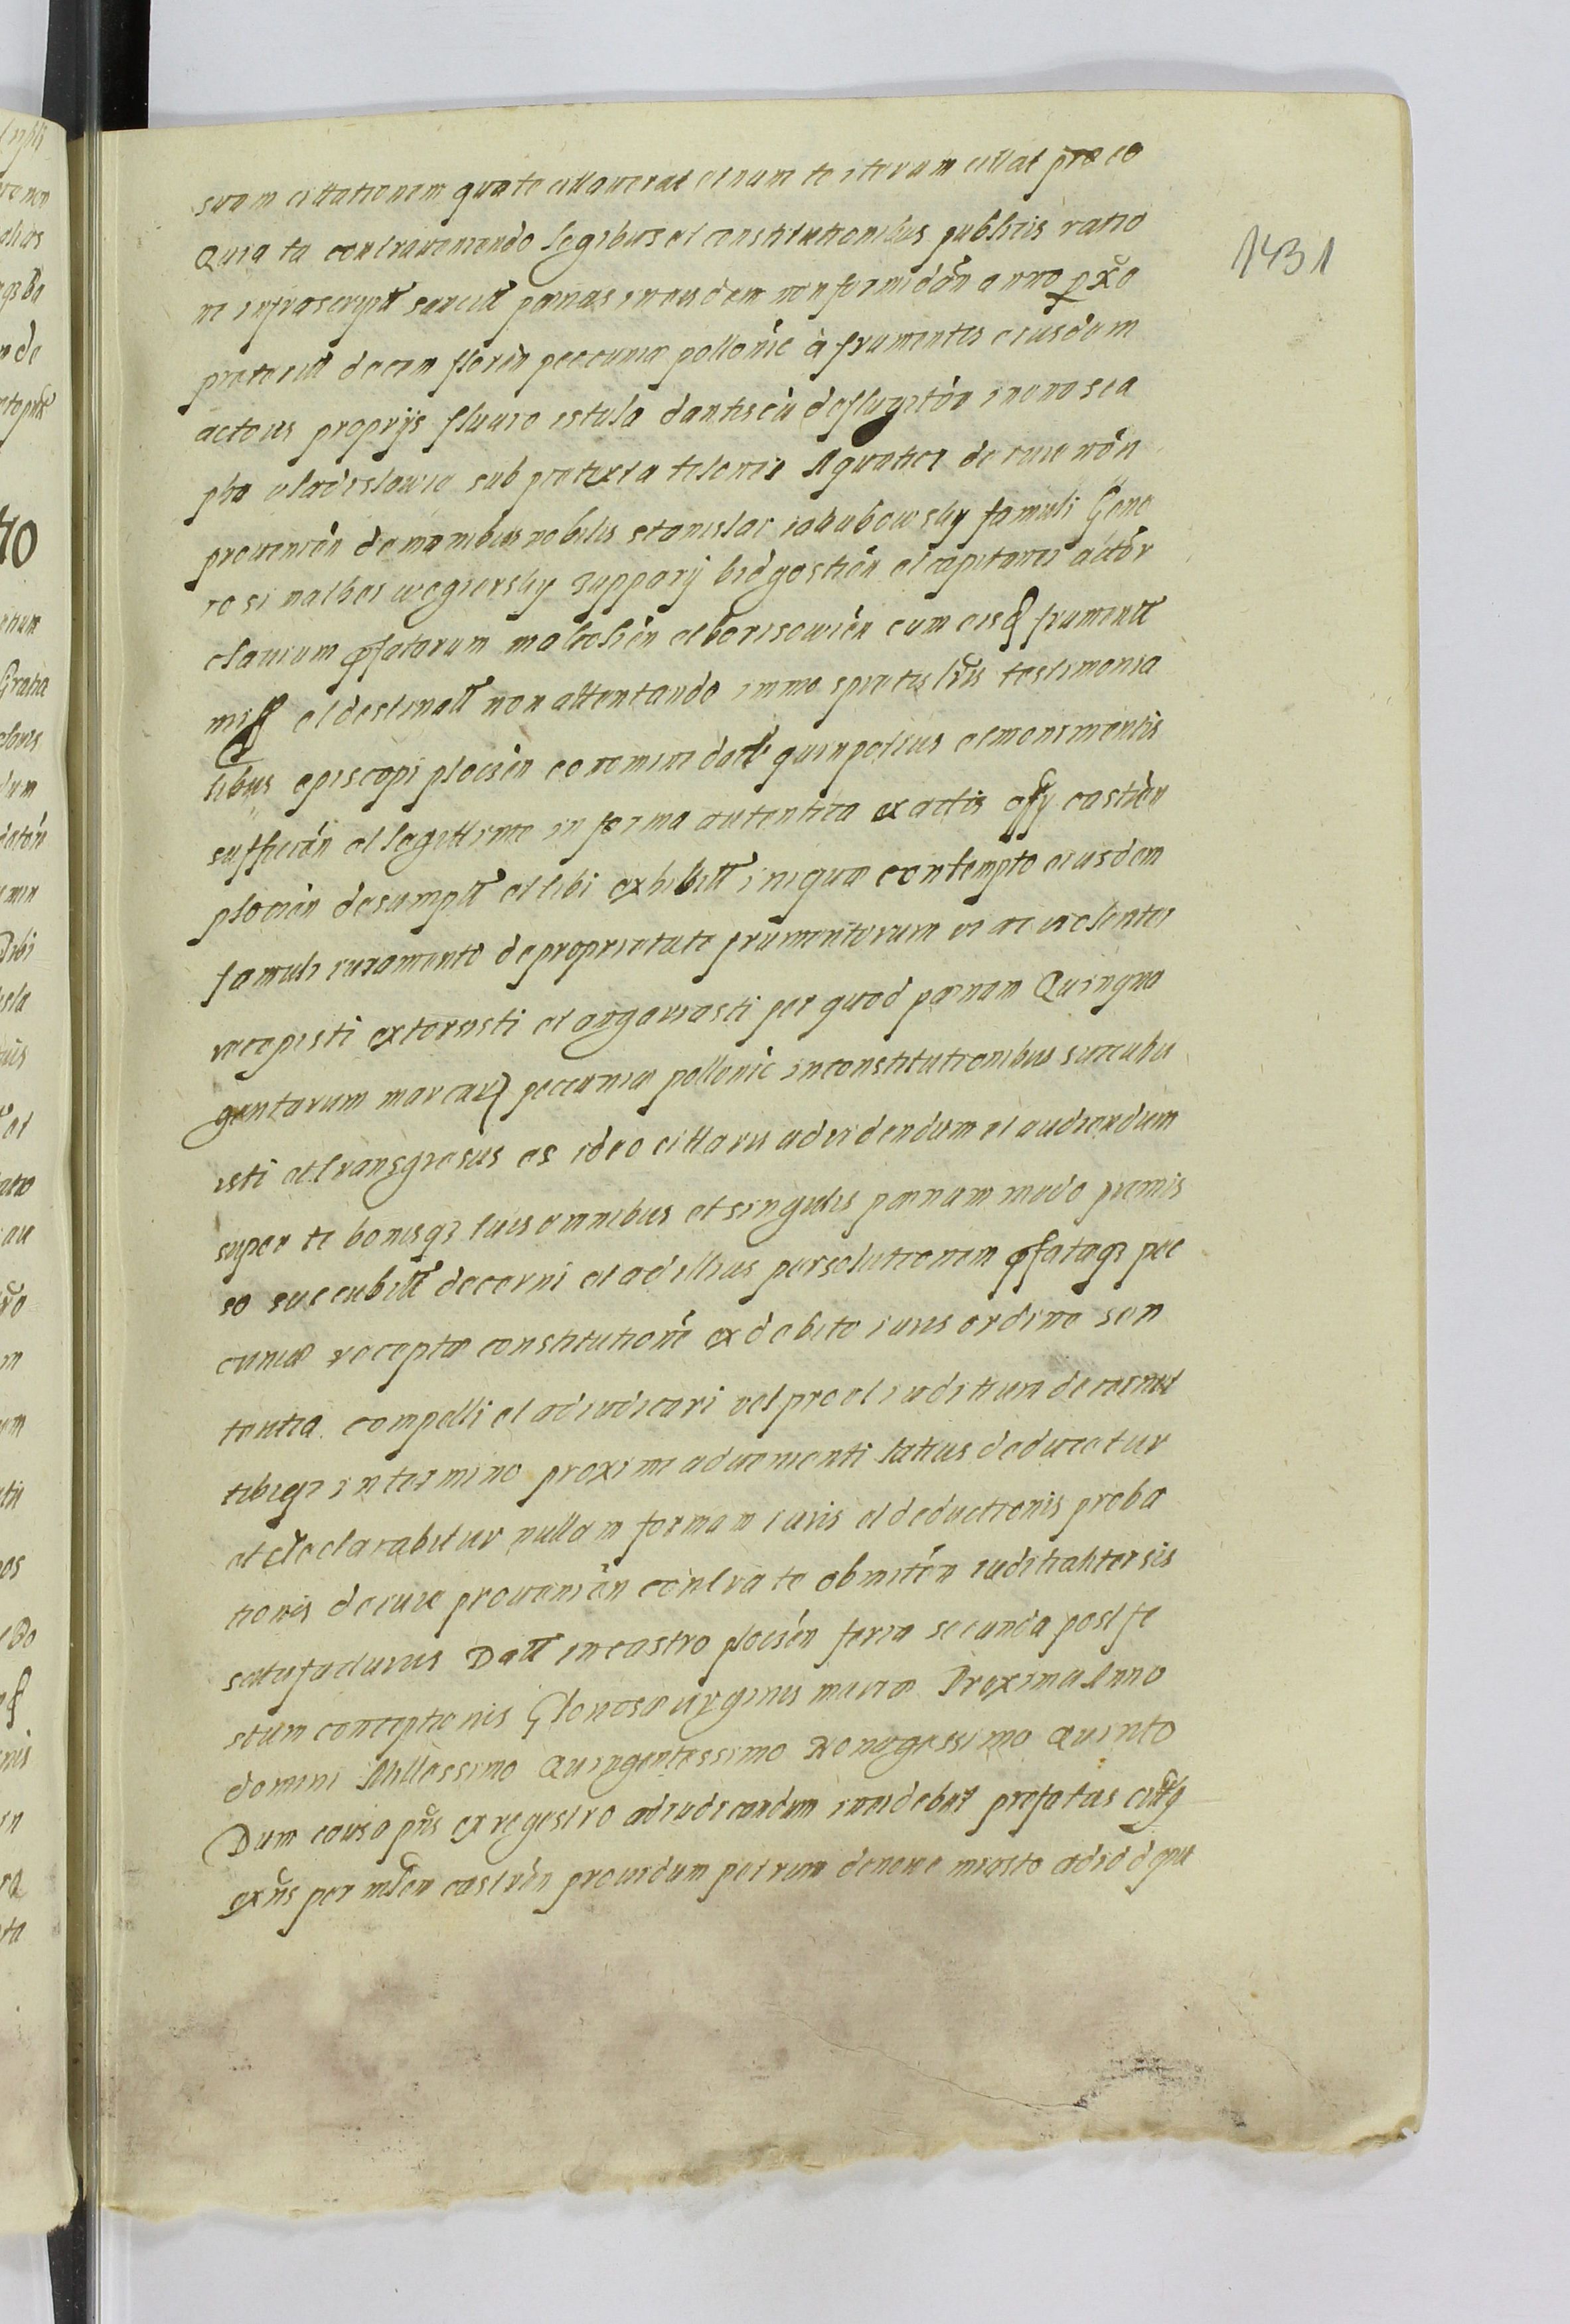 suam cittationem qua te cittauerat et nunc te iterum cittat pro eo
Quia tu contraueniendo legibus et constitutionibus publicis ratio
ne infrascriptt sancitt poenas in eisdem non formidan anno pxo
preteritt decem floren peecuniae pollonic à frumentis eiusdem
actoris proprijs fluuio istula dantiscu defluitan in
vladislauie sub pretextu telonei Aquatici de iure non
prouenien de manibus nobilis stanislai iakubowsky famuli Gene
rosi mathei wegiersky zuppary bidgostien et capitanei actor
clauium pfatarum et borisowien cum eisd frumentt
miss et destinatt non attentando immo spretis lris testimonia
libus episcopi plocien eo nomine datt quinpotius et monimentis
sufficien et legittime in forma autentica ex actis offy castren
plocien desumptt et tibi exhibitt iniquae contempto eiusdem
famuli iuramento de proprietate frumentorum vi ac violenter
recepisti extorsisti et angariasti per quod poenam Quingua
gentarum marcar peccuniae pollonic in constitutionibus succubu
isti et transgresus es ideo cittaris ad videndum et audiendum
super te bonisq3 tuis omnibus et singulis poenam modo premis
so succubitt decerni et ad illius persolutionem pfataq3 pec
cuniae receptae constitutione ex debito iuris ordine sen
tentia compelli et adiudicari vel pro et iuditium decernet
tibiq3 in termino proxime aduenienti latius deducetur
et declarabitur nullam formam iuris et deductionis proba
tionis de iure prouenien contra te obmiten iuditialiter sis
sattisfacturus Datt in castro plocien feria secunda post fe
stum conceptionis Gloriosae virginis mariae Proxima Anno
domini Millessimo Quingentessimo Nonagessimo Quinto
Dum causa pns ex regestro adiudicandum incidebat prefatus
exns per mlem castren prouidum petrum de noue miasto ad id depu
1431